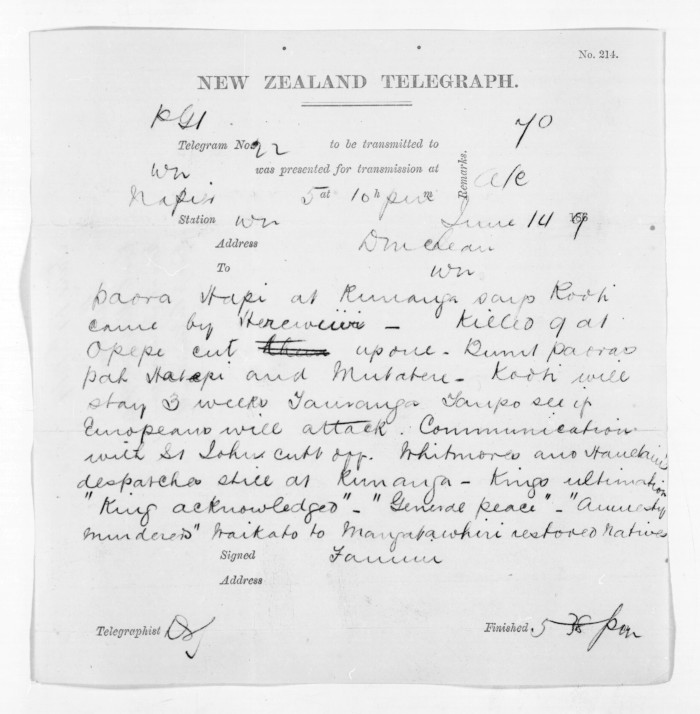 No. 214.
NEW ZEALAND TELEGRAPH.
70
Telegram No. 22 to be transmitted to
Wn was presented for transmission at Remarks.
Napier 5 at 10 h pm m
Station Wn June 14 186 9
Address D McLean
To Wn
Paora Hapi at Runanga says Kooti
came by - Killed 9 at
Opepe cut up one - Burnt Paoras
pah Hatepi and - Kooti will
stay 3 weeks Tauranga Taupo see if
Europeans will attack. Communication
with St Johns cutt off. Whitmores and Haultains
despatches still at Runanga - Kings ultimation
"King acknowledged" - "General peace" - "Amnesty
murderers" Waikato to Mangatawhiri restored Natives
Signed
Address
Telegraphist
Finished, 5 38 pm